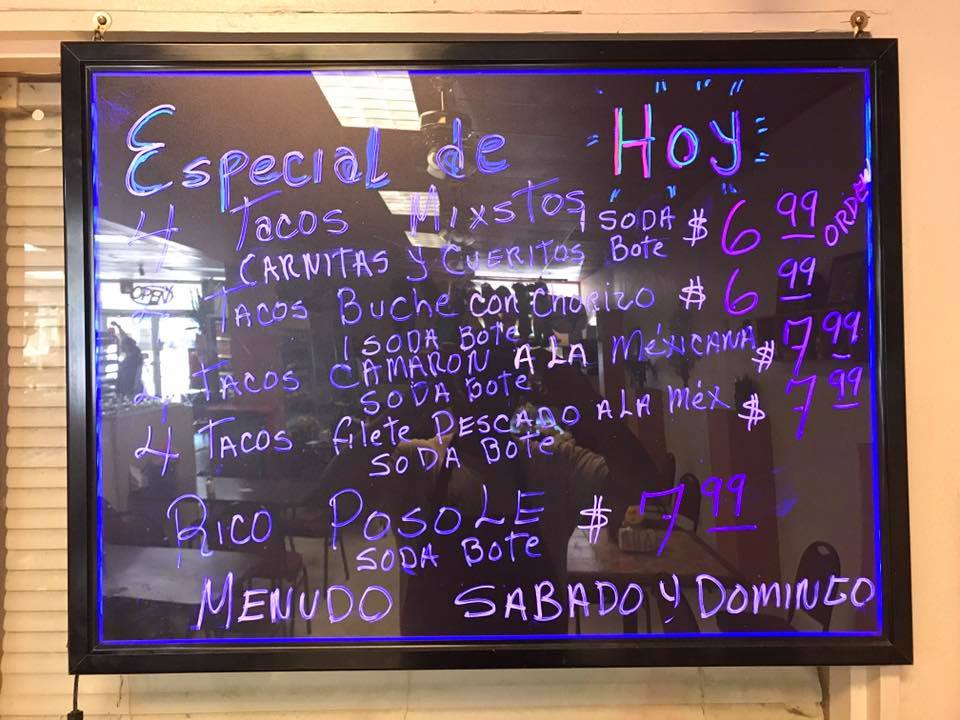 Especial de "Hoy"
4 Tacos Mixstos 1 SODA Bote $ 6 99 ORDEN
CARNITAS y CUERITOS
OPEN
TACOS BUCHE CON CHORIZO $ 6 99
1 SODA BOTE
TACOS CAMARON A LA MÉXICANA $ 7 99
SODA BOTE
4 TACOS filete PESCADO A LA MÉX $ 7 99
SODA BOTE
RICO POSOLE $ 7 99
SODA BOTE
MENUDO SABADO Y DOMINGO